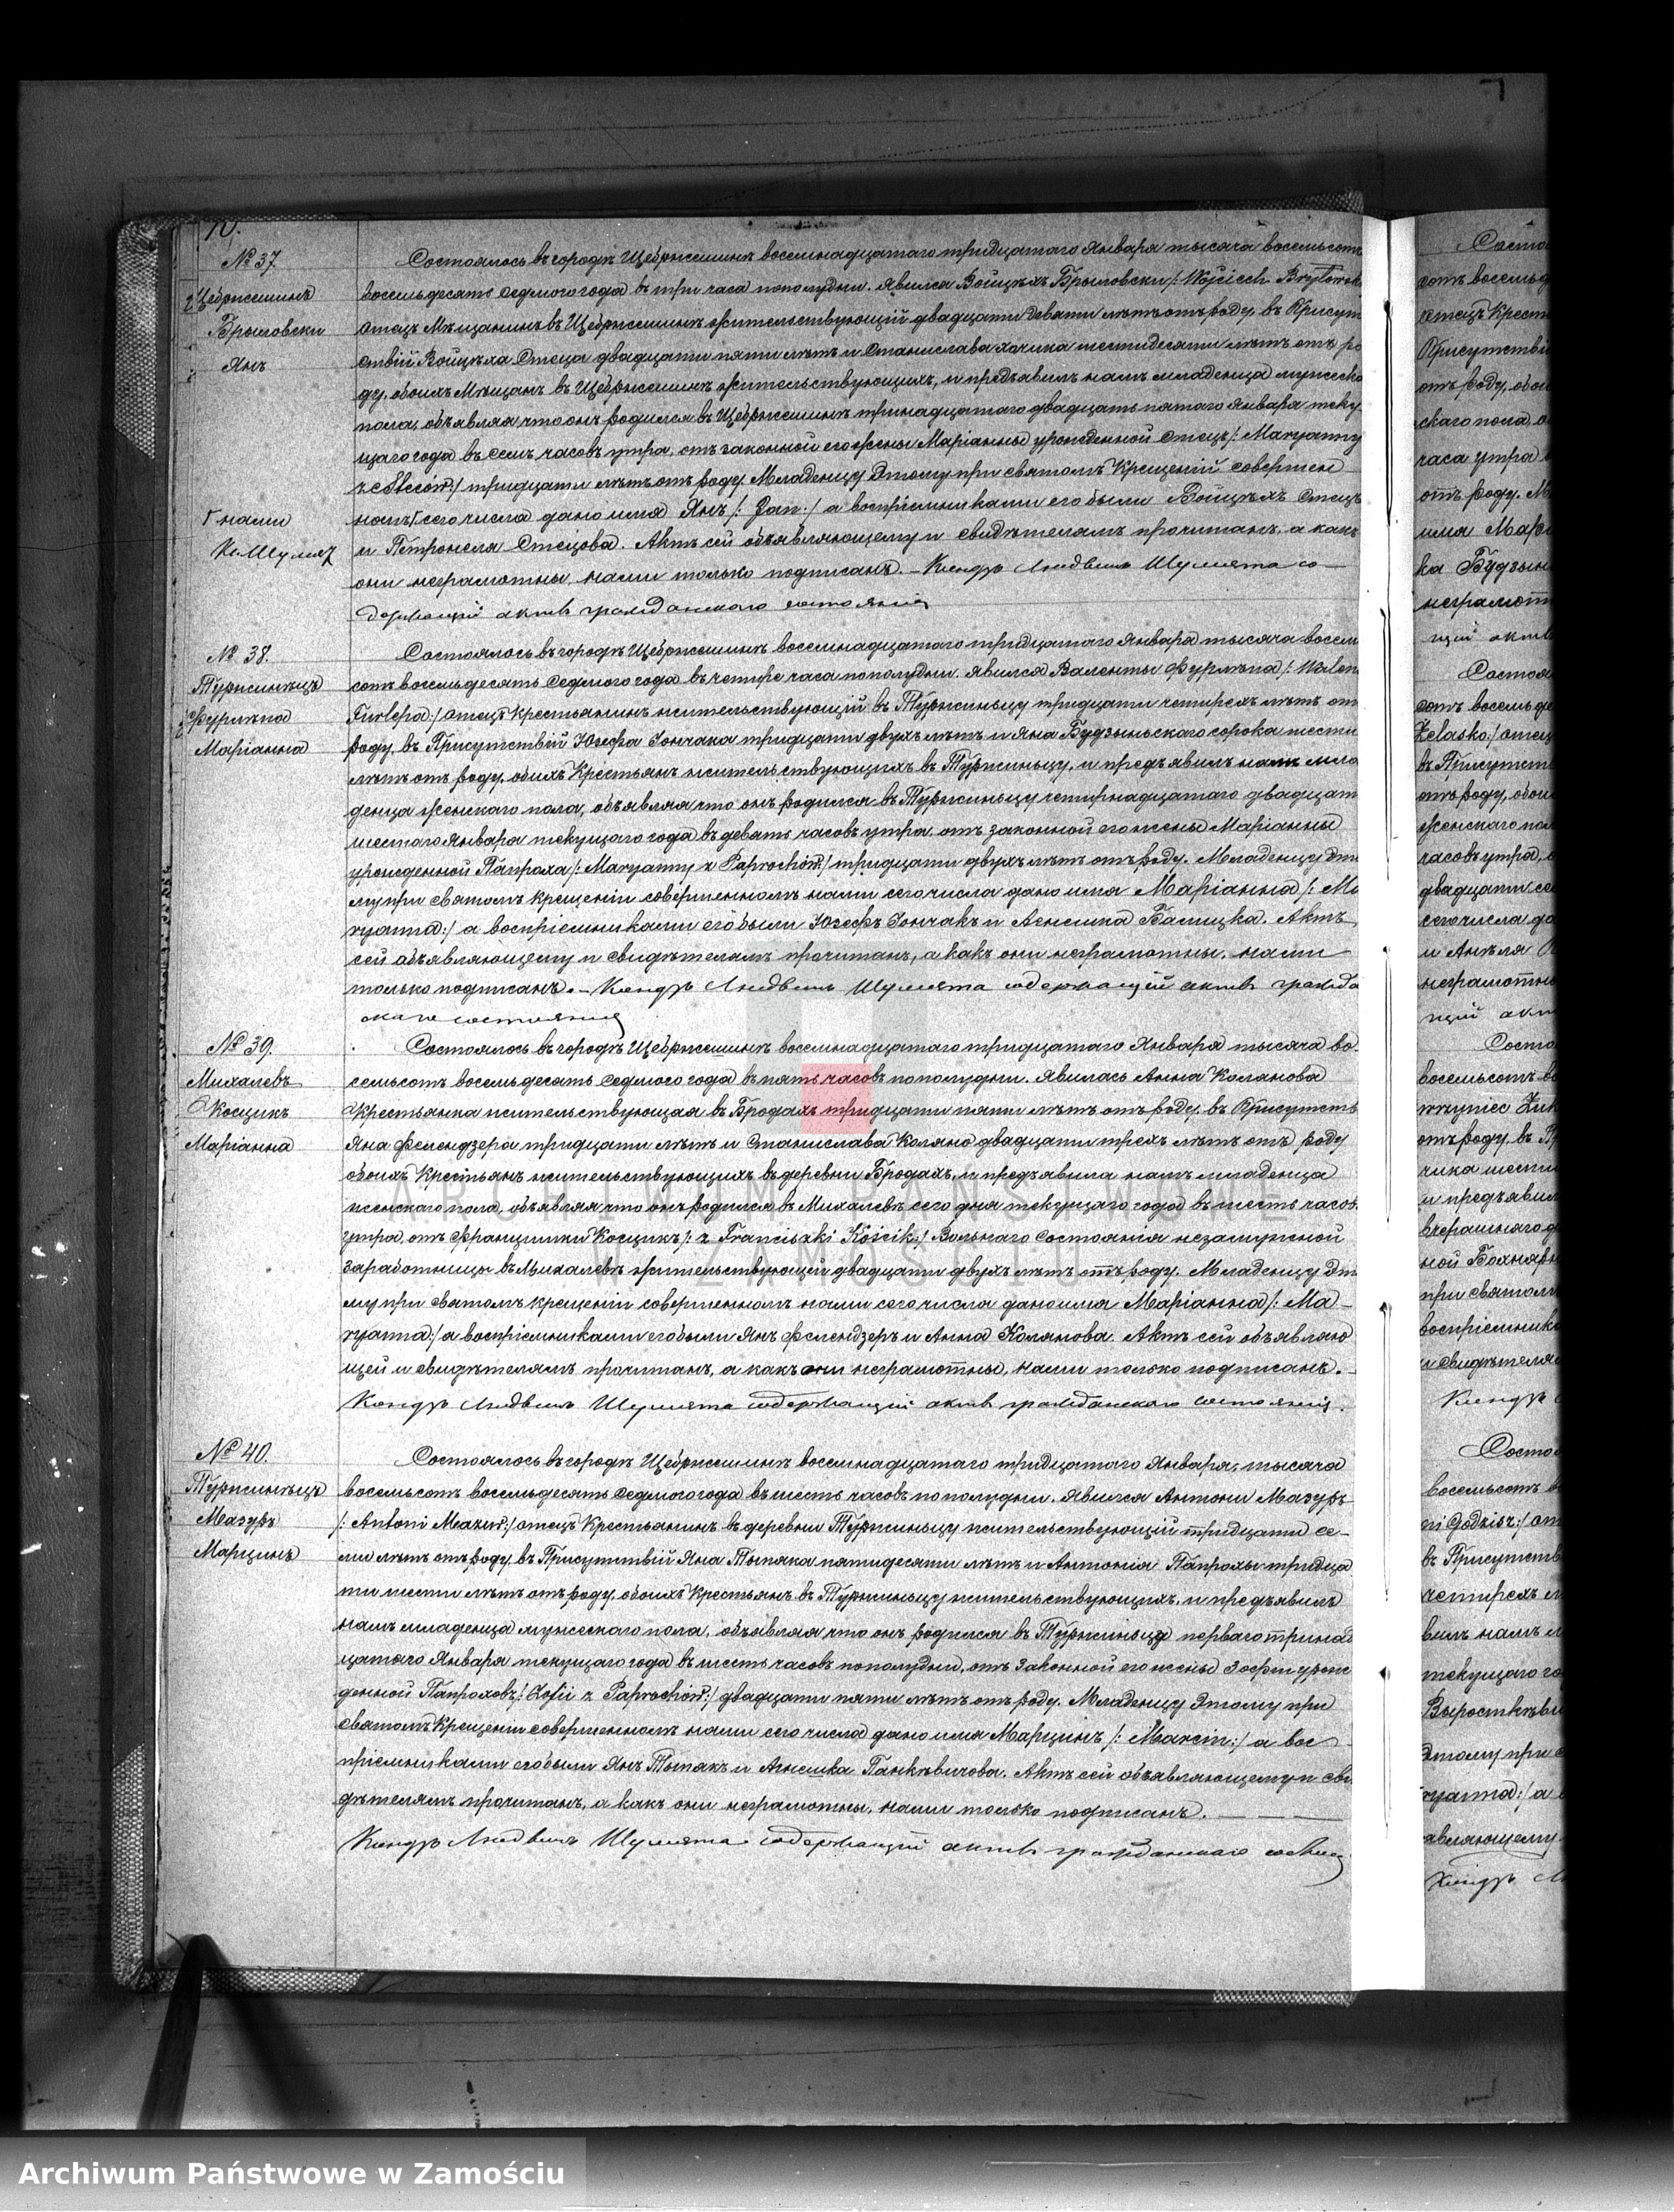 10.
№ 37.
Щебржешинъ
Брыловски
Янъ
Состоялось въ городѣ Щебржешинѣ восемнадцатаго тридцатаго Января тысяча восемьсотъ
восемьдесятъ седмого года въ три часа пополудни. Явился Войцѣхъ Брыловски /: Wojciech Bryłowski
отецъ Мѣщанинъ въ Щебржешинѣ жительствующій двадцати девяти лѣтъ отъ роду, въ Присут
ствій Войцѣха Стеца двадцати пяти лѣтъ и Станислава шестидесяти лѣтъ отъ ро
ду, обоихъ Мѣщанъ въ Щебржешинѣ жительствующихъ, и предъявилъ намъ младенца мужеска
пола, объявляя что онъ родился въ Щебржешинѣ тринадцатаго двадцать пятого Января теку
щаго года въ семь часовъ утра, отъ законной его жены Маріанны урожденной Стецъ /: Maryanny
z Steców :/ тридцати лѣтъ отъ роду. Младенцу Этому при святомъ Крещеній совершен
номъ Г сего числа дано имя Янъ /: Jan :/ а воспріемниками его были Войцѣхъ Стецъ
Г нами
Кс. Шумят
и Петронеля Стецова. Актъ сей объявляющему и свидѣтелямъ прочитанъ, а какъ
они неграмотны, нами только подписанъ. – Ксендзъ Людвикъ Шумята со–
держащій актовъ гражданскаго состоянія
№ 38.
Туржинѣцъ
Фурлѣпа
Маріанна
Состоялось въ городѣ Щебржешинѣ восемнадцатаго тридцатаго Января тысяча восемь
сотъ восемьдесятъ седмого года въ четире часа пополудни. Явился Валенты Фурлѣпа /: Walen
Furlepa :/ отецъ Крестьянинъ жительствующій въ Туржиньцу тридцати четирехъ лѣтъ от
роду, въ Присутствій Юзефа Іончака тридцати двухъ лѣтъ и Яна Будзыньскаго сорока шести
лѣтъ отъ роду, обихъ Крестьянъ жительствующихъ въ Туржиньцу, и предъявилъ намъ мла
денца женскаго пола, объявляя что онъ родился въ Туржиньцу четирнадцатаго двадцать
шестого Января текущаго года въ девять часовъ утра, отъ законной его жены Маріанны
урожденной Папроха /: Maryanny z Paprochów :/ тридцати двухъ лѣтъ отъ роду. Младенцу Это
му при святомъ крещеніи совершенномъ нами сего числа дано имя Маріанна /: Ma
ryanna :/ а воспріемниками его были Юзефъ Іончакъ и Агнешка Балицка. Актъ
сей объявляющему и свидѣтелямъ прочитанъ, а какъ они неграмотны, нами
только подписанъ. – Ксендзъ Людвикъ Шумята содержащій актовъ гражда
скаго состоянія
№ 39.
Михалевъ
Косцикъ
Маріанна
Состоялось въ городѣ Щебржешинѣ восемнадцатаго тридцатаго Января тысяча во
семьсотъ восемьдесятъ седмого года въ пять часовъ пополудни. Явилась Анна Коланова
Крестьянка жительствующая въ Бродахъ тридцати пяти лѣтъ отъ роду, въ Присутств
Яна Фелендзера тридцати лѣтъ и Станислава Коляно двадцати трехъ лѣтъ отъ роду
обоихъ Крестьянъ жительствующихъ въ деревни Бродахъ, и предъявила намъ младенца
женскаго пола, объявляя что онъ родился въ Михалевѣ сего дня текущаго года въ шесть часовъ
утра, отъ Францишки Косцикъ /: z Franciszki Kościk :/ Вольнаго Состоянія незамужной
заработницы въ Михалевѣ жительствующей двадцати двухъ лѣтъ отъ роду. Младенцу Это
му при святомъ крещеніи совершенномъ нами сего числа дано имя Маріанна /: Ma–
ryanna :/ а воспріемниками его были Янъ Фелендзеръ и Анна Колянова. Актъ сей объявляю
щей и свидѣтелямъ прочитанъ, а какъ они неграмотны, нами только подписанъ. –
Ксендзъ Людвикъ Шумята содержащій актовъ гражданскаго состоянія.
№ 40.
Туржинѣцъ
Мазуръ
Марцинъ
Состоялось въ городѣ Щебржешинѣ восемнадцатаго тридцатаго Января, тысяча
восемьсотъ восемьдесятъ седмого года въ шесть часовъ пополудни. Явился Антони Мазуръ
/: Antoni Mazur :/ отецъ Крестьянинъ въ деревни Туржиньцу жительствующій тридцати се–
ми лѣтъ отъ роду, въ Присутствій Яна Тытяка пятидесяти лѣтъ и Антонія Папрохы тридца
ти шести лѣтъ отъ роду, обоихъ Крестьянъ въ Туржиньцу жительствующихъ, и предъявилъ
намъ младенца мужескаго пола, объявляя что онъ родился въ Туржиньцу перваго тринад
цатаго Января текущаго года въ шесть часовъ пополудни, отъ законной его жены Зофіи урож
денной Папроховъ /: Zofii z Paprochów :/ двадцати пяти лѣтъ отъ роду. Младенцу Этому при
святомъ Крещеніи совершенномъ нами сего числа дано имя Марцинъ /: Marcin :/ а вос–
пріемниками его были Янъ Тытякъ и Агнешка Панкѣвичова. Актъ сей объявляющему и сви
дѣтелямъ прочитанъ, а какъ они неграмотны, нами только подписанъ. — — —
Ксендзъ Людвикъ Шумята содержащій актовъ гражданскаго состоян
Состо
сотъ восемьд
отецъ Крест
Присутстві
отъ роду, обои
скаго пола, о
часа утра
отъ роду. М
имя Марі
ка Будзын
неграмотн
щій актов
Состоя
сотъ восемьде
Żelasko :/ отец
въ Присутств
отъ роду, обои
женскаго пол
часовъ утра, о
двадцати се
сего числа да
и Анѣля
неграмотны
щій акт
Состо
восемьсотъ во
wrzyniec Żuk
отъ роду, въ Пр
чика шести
и предъявил
вчерашняго д
ной Бохняк
при святом
воспріемника
и свидѣтеля
Ксендзъ
Состо
восемьсотъ в
ni Godzisz :/ от
въ Присутств
четирехъ л
вилъ намъ м
текущаго го
Выросткѣви
Этому при с
ryanna :/ а
авляющему
Ксендзъ Л
ARCHIWUM PAŃSTWOWE
W ZAMOŚCIU
Archiwum Państwowe w Zamościu